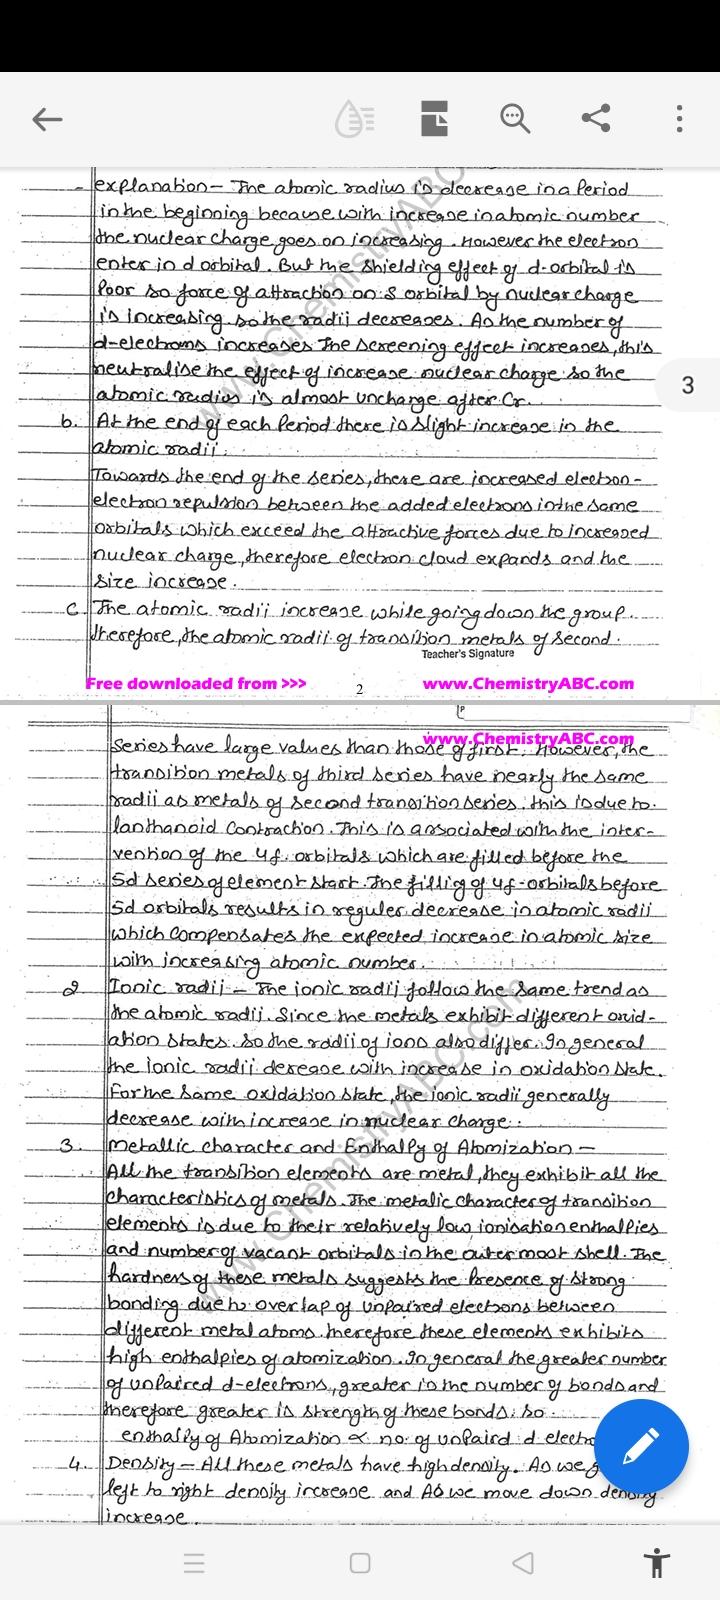 explanation- The atomic radius is decrease in a Period
in the beginning because with increase in atomic number
the nuclear charge goes on increasing. However the electron
enter in d orbital. But the shielding effect of d-orbital is
Poor so force of attraction on S orbital by nuclear charge
is increasing. so the radii decreases. As the number of
d-electrons increases The screening effect increases, this
neutralise the effect of increase nuclear charge so the
atomic radius is almost uncharge after Cr.
3
b. At the end of each Period there is slight increase in the
atomic radii.
Towards the end of the series, there are increased electron-
electron repulsion between the added electrons in the same
orbitals which exceed the attractive forces due to increased
nuclear charge, therefore electron cloud expands and the
size increase.
c. The atomic radii increase while going down the group.
therefore, the atomic radii of transition metals of second.
Teacher's Signature
Free downloaded from >>> 2 www.ChemistryABC.com
www.ChemistryABC.com
Series have large values than those of first. However, the
transition metals of third series have nearly the same
radii as metals of second transition series. this is due to.
lanthanoid contraction. This is associated with the inter-
vention of the 4f. orbitals which are filled before the
5d series of element start. The fillig of 4f-orbitals before
5d orbitals results in reguler decrease in atomic radii
which compensates the expected increase in atomic size
with increasing atomic number.
2 Ionic radii - The ionic radii follow the same trend as
the atomic radii. Since the metals exhibit different oxid-
ation states. So the radii of ions also differ. In general
the ionic radii derease with increase in oxidation state.
For the same oxidation state, the ionic radii generally
decrease with increase in nuclear charge.
3. Metallic character and Enthalpy of Atomization -
All the transition elements are metal, they exhibit all the
characteristics of metals. The metalic character of transition
elements is due to their relatively low ionisation enthalpies
and number of vacant orbitals in the outer most shell. The
hardness of these metals suggests the Presence of strong
bonding due to overlap of unpaired electrons between
different metal atoms. therefore these elements exhibits
high enthalpies of atomization. In general the greater number
of unpaired d-electrons, greater is the number of bonds and
therefore greater is strength of these bonds. So
enthalpy of Atomization ∝ no. of unpaird d electro
4. Density - All these metals have high density. As we g
left to right density increase and As we move down density
increase.
www.ChemistryABC.com